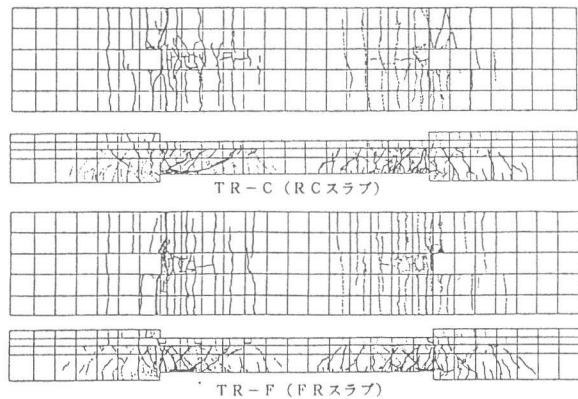 TR-C (RCスラブ)
TR-F (FRスラブ)